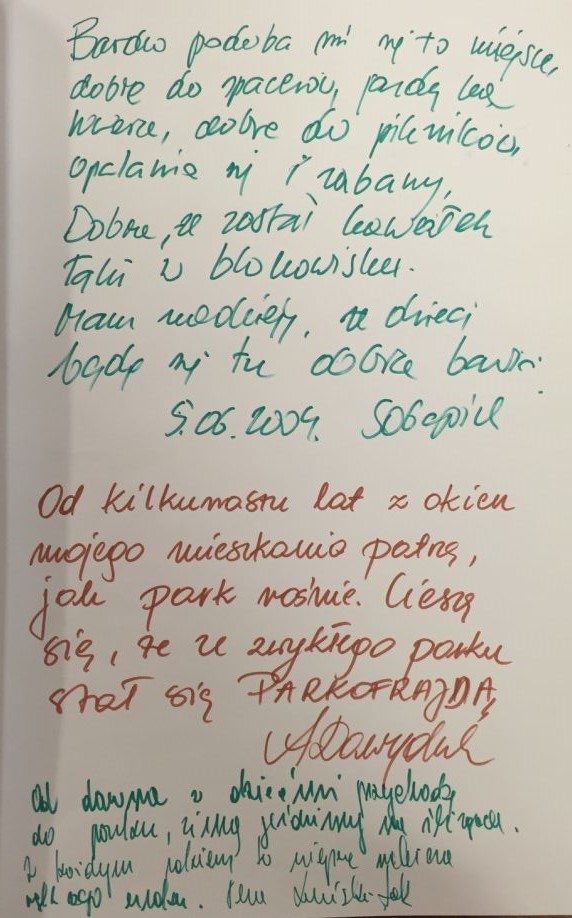 Bardzo podoba mi się to miejsce,
dobre do spacerów, jazdy na
dobre do pikników,
opalania się i zabawy,
Dobrze, że został kawałek
taki w blokowisku.
Mam nadzieję, że dzieci
będą się tu dobrze bawić.
5.06.2004.
Od kilkunastu lat z okien
mojego mieszkania patrzę,
jak park rośnie. Cieszę
się, że ze zwykłego parku
stał się PARKOFRAJDĄ
Od dawna z dziećmi przychodzę
do parku, zimą jeździmy na
Z każdym rokiem to miejsce nabiera